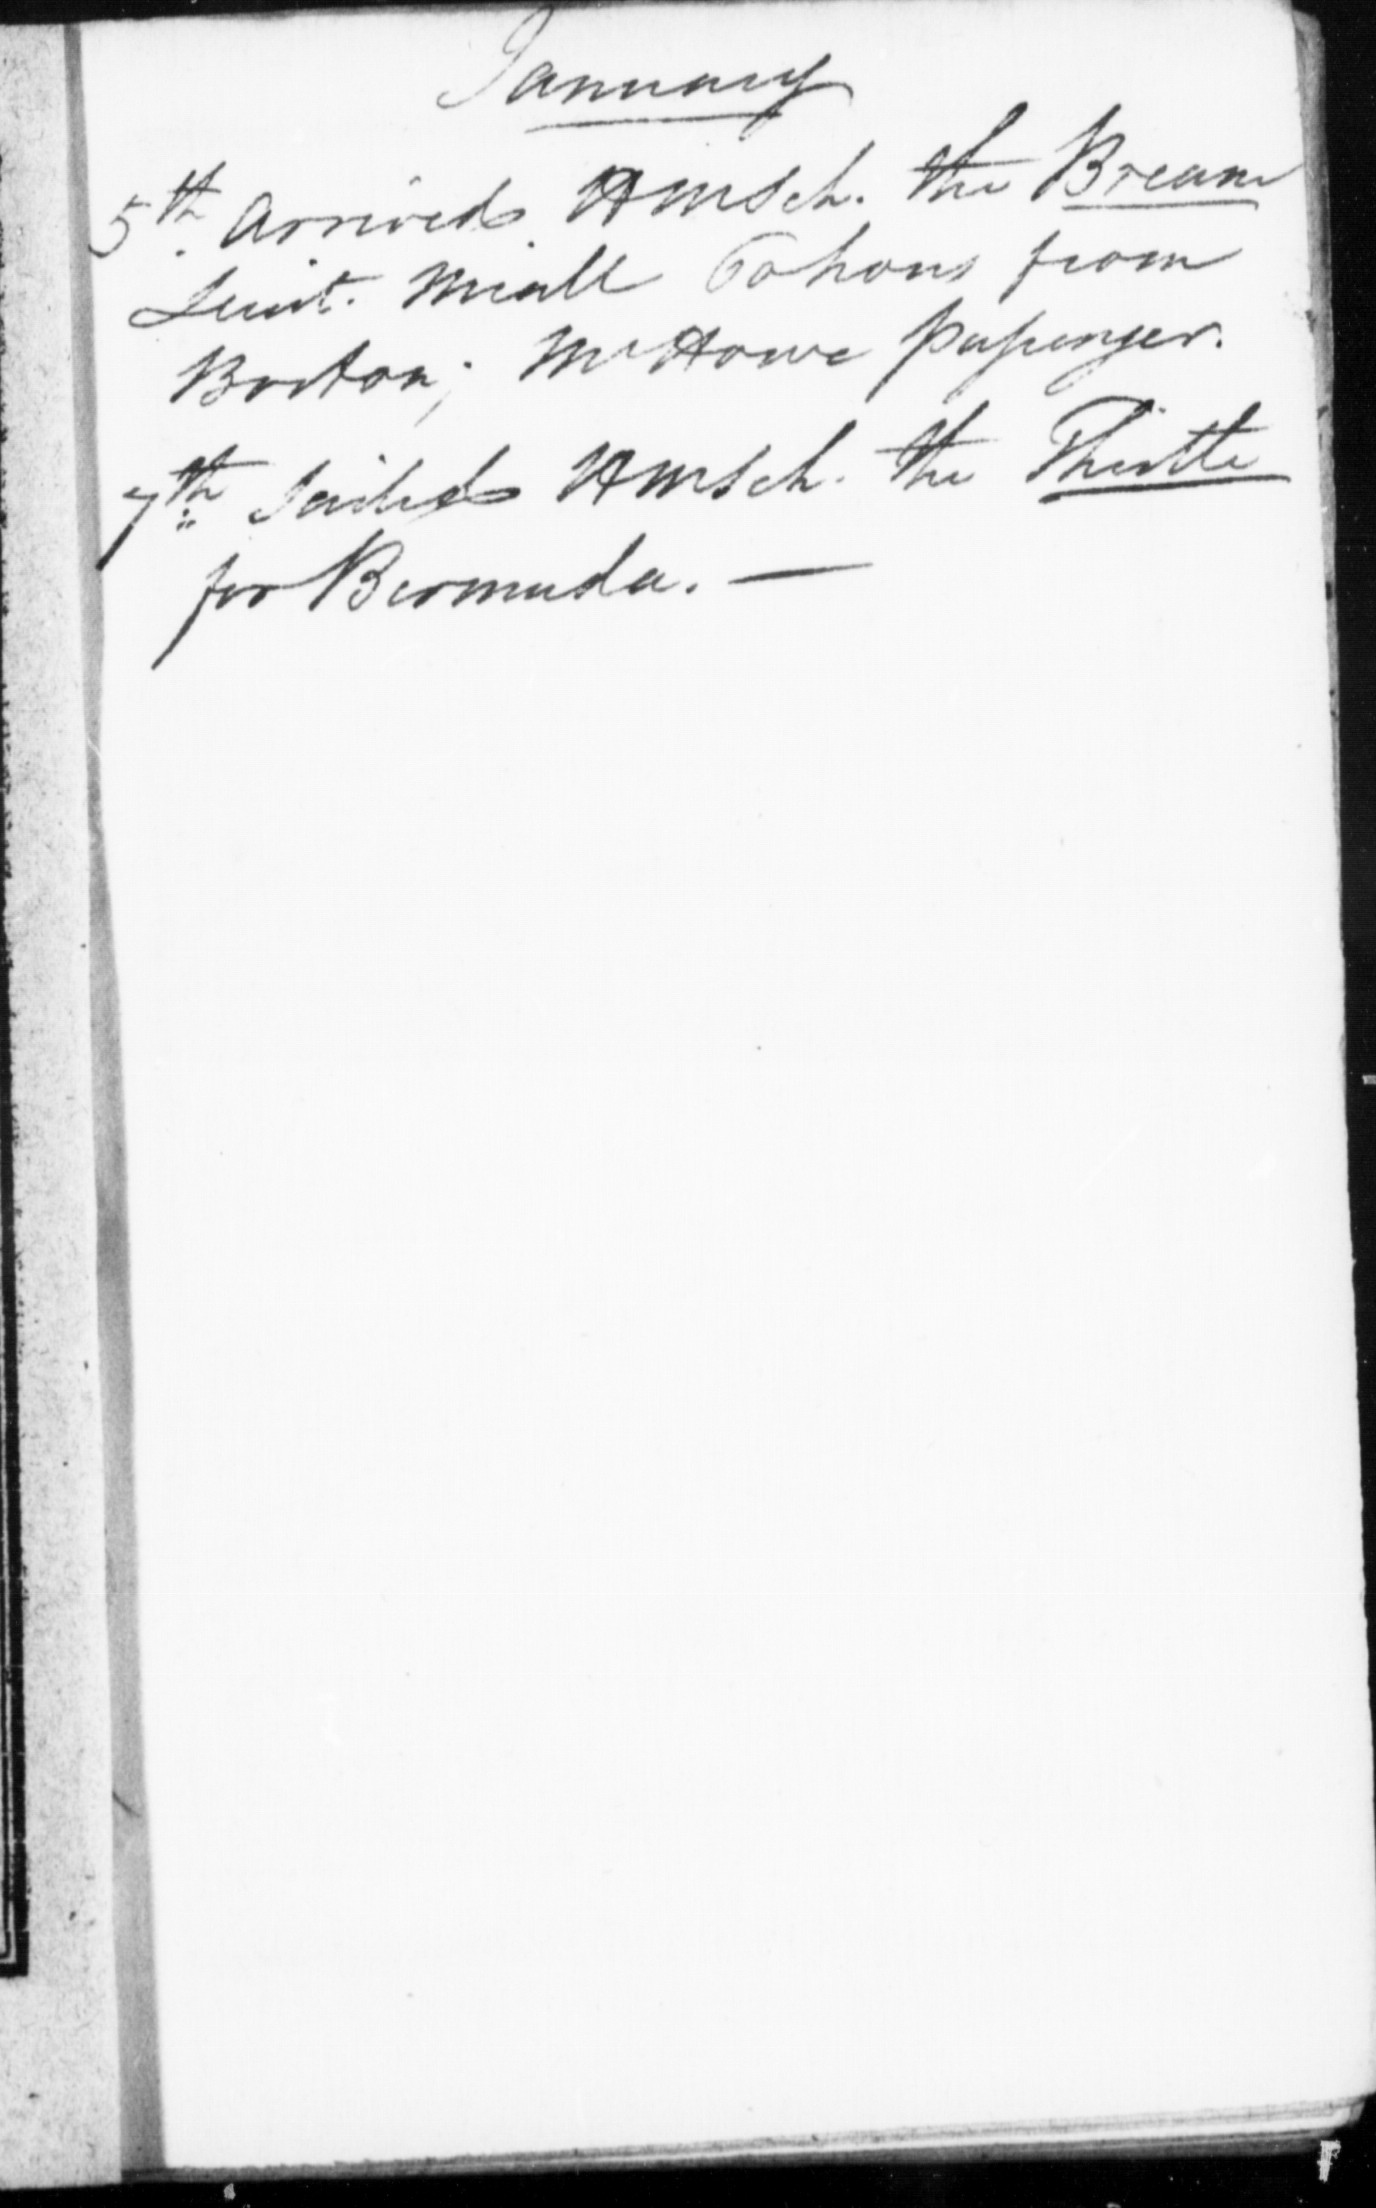 January
5th. Arrived HMSch. the Bream
Lieut. Miall 60 hours from
Boston; Mr Howe passenger.
7th Sailed HMSch. the Thistle
for Bermuda. —